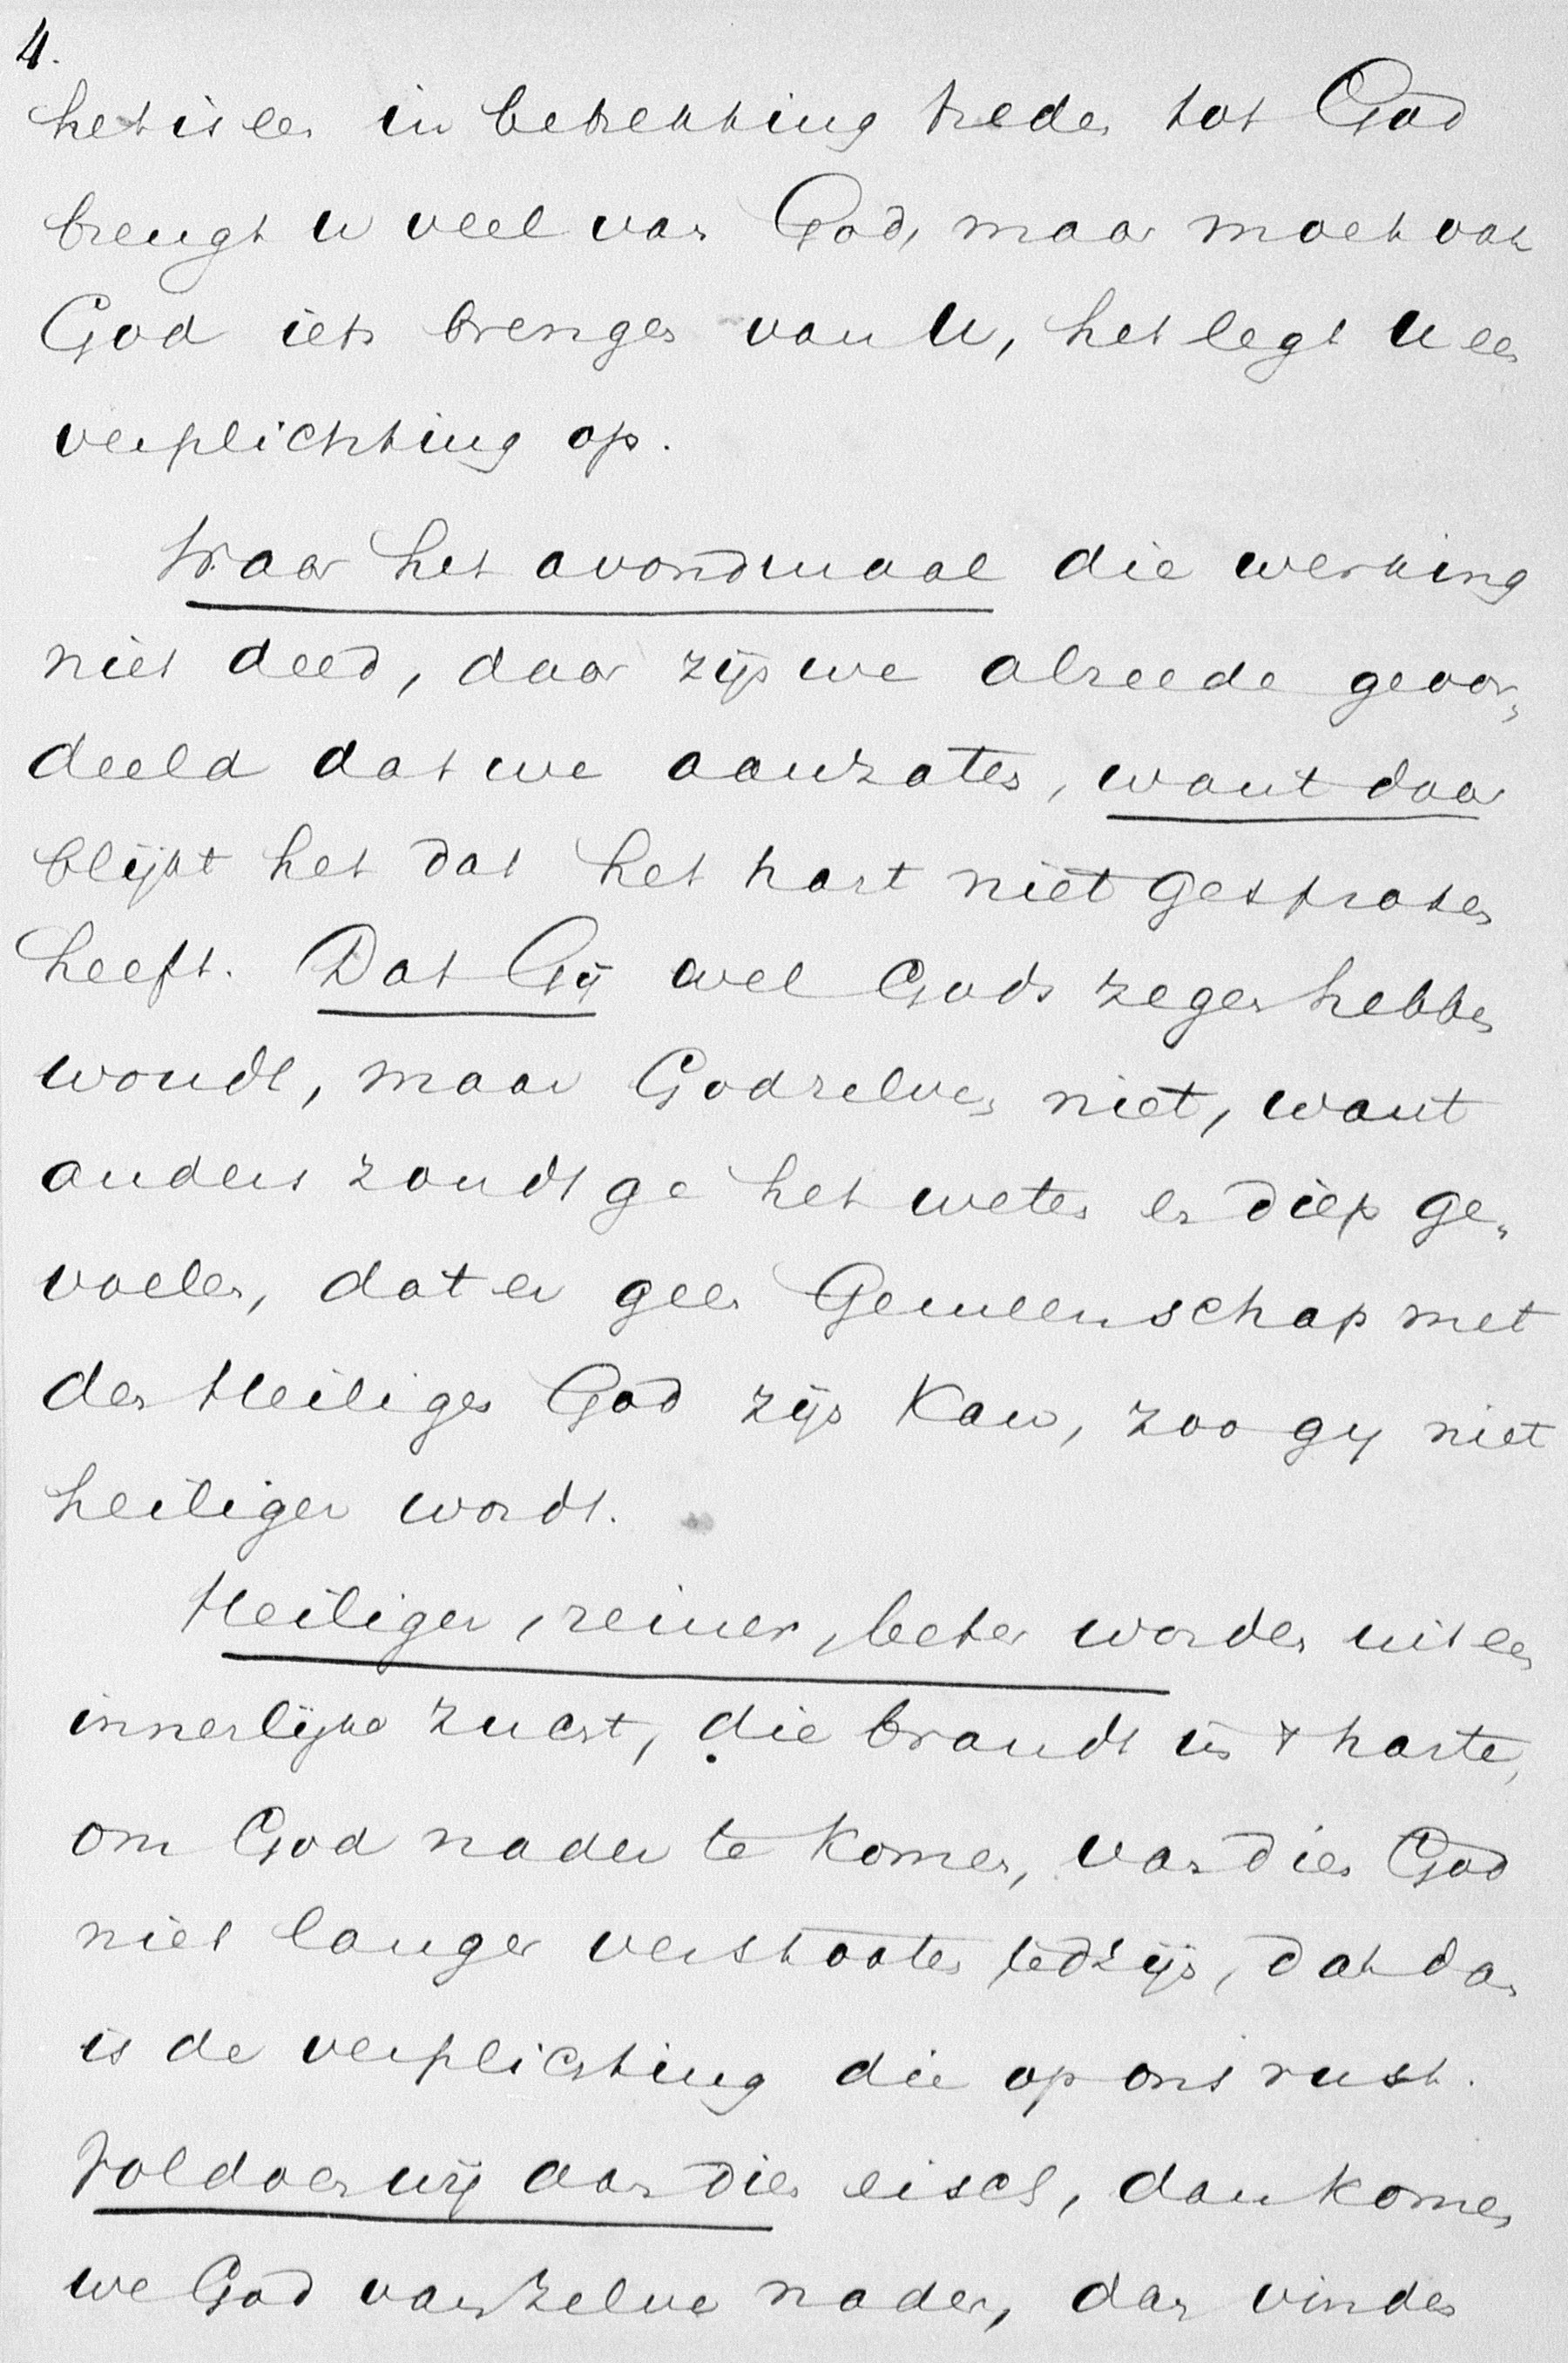 4.
het is een in betrekking treden tot God
brengt u veel van God, maar moet ook
God iets brengen van U, het legt U een
verplichting op.
Waar het avondmaal die werking
niet deed, daar zijn we alreede geoor„
deeld dat we aanzaten, want daar
blijkt het dat het hart niet gesproken
heeft. Dat Gij wel Gods zegen hebben
woudt, maar God zelven niet, want
anders zoudt ge het weten en diep ge„
voelen, dat er geen Gemeenschap met
den Heiligen God zijn kan, zoo gij niet
heiliger wordt.
Heiliger, reiner, beter worden uit een
innerlijke zucht, die brandt in 't harte,
om God nader te komen, van dien God
niet langer verstooten te zijn, dat dan
is de verplichting die op ons rust.
Voldoen wij aan dien eisch, dan komen
we God van zelve nader, dan vinden